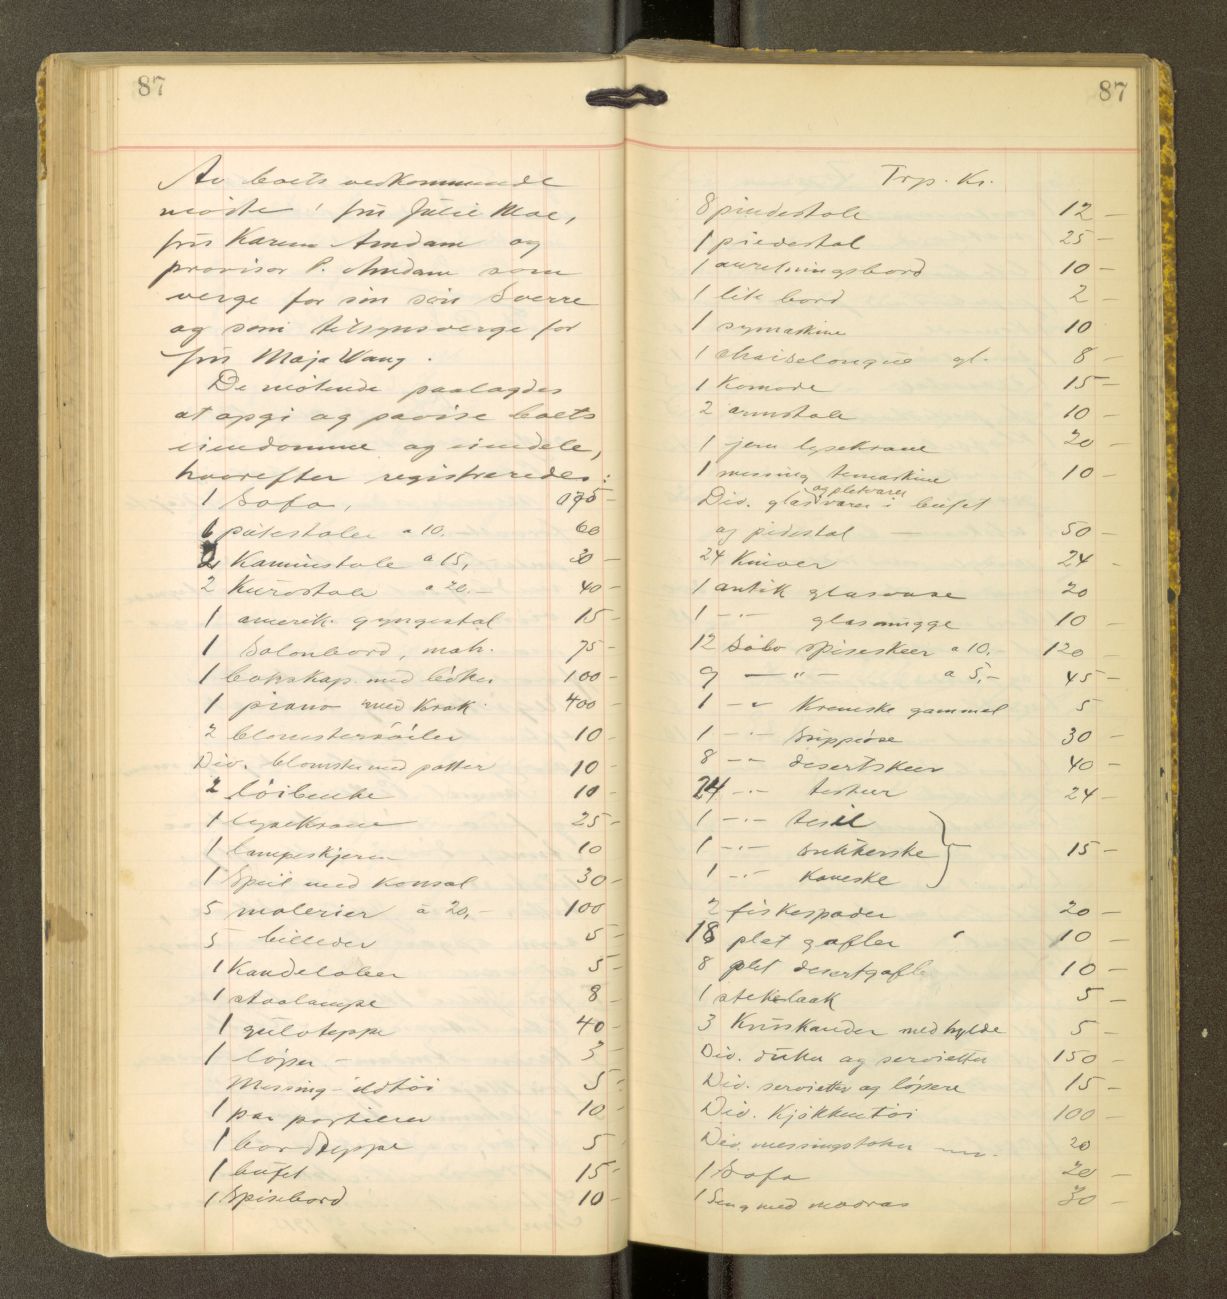 87
Av boets vedkommende
møtte: frü Jülie Moe,
frü Karen Amdam og
provisor P. Amdam som
verge for sin søn Sverre
og som tilsynsverge for
frü Maja Wang.
De møtende paalagdes
at opgi og paavise boets
eiendomme og eiendele,
hvorefter registreredes:
1 Sofa,
6 pütestoler a 10. 60
2 Kaminstole a 15, 30 –
2 Kürvstole a 20,– 40 –
1 amerik. gyngestol 15 –
1 Salonbord, mah. 75 –
1 bokskap med bøker 100 –
1 piano med Krak 400 –
2 blomstersøiler 10 –
Div. blomster med potter 10 –
2 løibenke 10 –
1 lysekrone 25 –
1 lampeskjerm 10
1 Speil med konsol 30 –
5 malerier à 20,– 100
5 billeder 5 –
1 Kandelaber 5 –
1 staalampe 8 –
1 gülvteppe 40 –
1 løper – 3 –
Messing-ildtøi 5 –
1 par portierer 10 –
1 bordteppe 5 –
1 büfet 15 –
1 Spisebord 10 –
87
Trp. Kr.
8 pindestole 12 –
1 piedestal 25 –
1 anretningsbord 10 –
1 lite bord 2 –
1 symaskine 10
1 chaiselongue gl. 8 –
1 Komode 15 –
2 armstole 10 –
1 jern lysekrone 20 –
1 messing temaskine 10 –
og pletvarer
Div. glasvarer i büfet
og pidestal – 50 –
24 Kniver 24 –
1 antik glasvase 20
1 –"– glasmugge 10 –
12 Sølv spiseskeer a 10. 120 –
9 –"– a 5,– 45 –
1 –"– Kremske gammel 5
1 –"– Süppeøse 30 –
8 –"– desertskeer 40 –
24 –"– teskeer 24 –
1 –"– tesil
1 –"– sukkerske 15 –
1 –"– Kaveske
2 fiskespader 20 –
18 plet gafler 10 –
8 plet desertgafler 10 –
1 5 –
3 Krüskander med hylde 5 –
Div. düker og servietter 150 –
Div. servietter og løpere 15 –
Div. Kjøkkentøi 100 –
Div. messingstaker 20
1 Sofa 20 –
1 Seng med madras 30 –